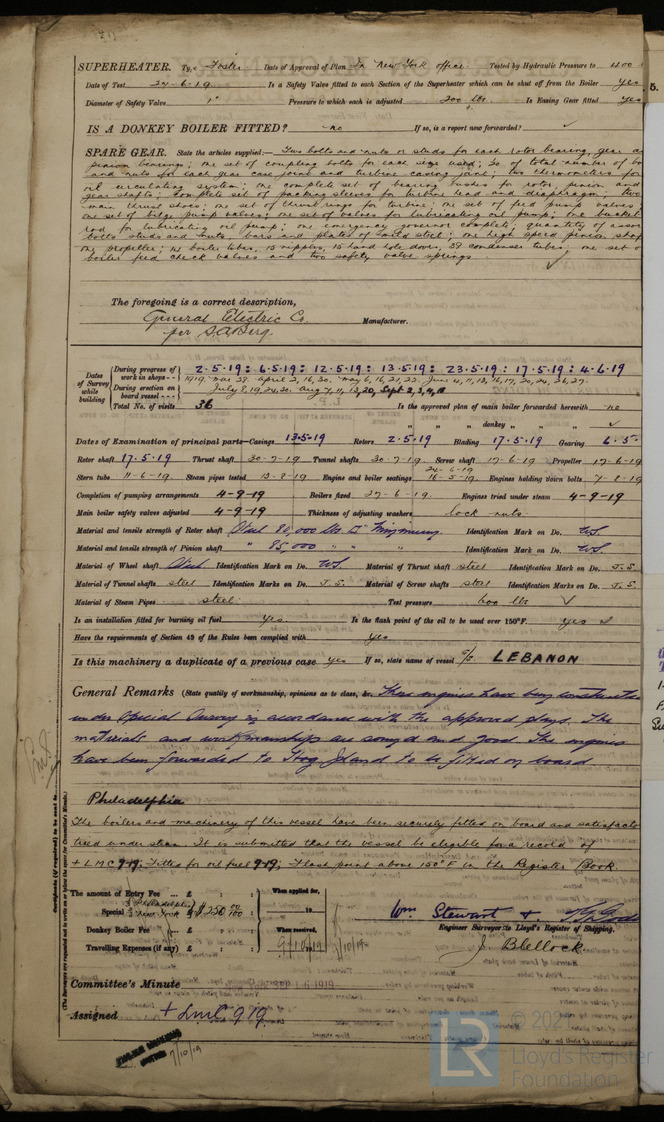 SUPERHEATER. Type Foster Date of Approval of Plan In New York office. Tested by Hydraulic Pressure to 400
Date of Test 24-6-19 Is a Safety Valve fitted to each Section of the Superheater which can be shut off from the Boiler Yes
Diameter of Safety Valve 1" Pressure to which each is adjusted 200 lbs. Is Easing Gear fitted Yes
IS A DONKEY BOILER FITTED? no If so, is a report now forwarded? ✓
SPARE GEAR. State the articles supplied:— Two bolts and nuts or studs for each rotor bearing, gear a
pinion bearings; one set of coupling bolts for each size used; 20 of total number of bo
and nuts for each gear case joint and turbine casing joint; two thermometers for
oil circulating system; one complete set of bearing bushes for rotor, pinion and
gear shafts; complete set of packing sleeves for turbine head and diaphragm; two
main thrust shoes; one set of thrust rings for turbine; one set of feed pump valves
one set of bilge pump valves; one set of valves for lubricating oil pump; one bucket
rod for lubricating oil pump; one emergency governor complete; quantity of assor
bolts studs and nuts, bars and plates of iron & steel; one high speed pinion shaf
one propeller; 12 boiler tubes, 15 nipples, 15 hand hole doors, 38 condenser tubes. one set o
boiler feed check valves and two safety valve springs. ✓
The foregoing is a correct description,
General Electric Co.
per S.A. Berg. Manufacturer.
Dates of Survey while building
During progress of work in shops - - 2.5.19: 6.5.19: 12.5.19: 13.5.19: 23.5.19: 17.5.19: 4.6.19
1919. Mar 28. April 2, 16, 30. May 6, 16, 21, 22. June 4, 11, 13, 16, 17, 20, 24, 26, 27.
During erection on board vessel - - - July 8, 19, 24, 30. Aug 7, 11, 13, 20, Sept 2, 3, 4,
Total No. of visits 36 Is the approved plan of main boiler forwarded herewith no
" " " donkey " " " ✓
Dates of Examination of principal parts—Casings 13.5.19 Rotors 2.5.19 Blading 17.5.19 Gearing 6.5.
Rotor shaft 17.5.19 Thrust shaft 30-7-19 Tunnel shafts 30-7-19 Screw shaft 17-6-19 Propeller 17-6-19
Stern tube 11-6-19 Steam pipes tested 13-8-19 Engine and boiler seatings 24-6-19 16-5-19 Engines holding down bolts 7-8-19
Completion of pumping arrangements 4-9-19 Boilers fixed 27-6-19 Engines tried under steam 4-9-19
Main boiler safety valves adjusted 4-9-19 Thickness of adjusting washers lock nuts
Material and tensile strength of Rotor shaft Steel 80,000 lbs Identification Mark on Do. WS.
Material and tensile strength of Pinion shaft " 85,000 " " " Identification Mark on Do. WS.
Material of Wheel shaft Steel Identification Mark on Do. WS. Material of Thrust shaft steel Identification Mark on Do. J.S.
Material of Tunnel shafts steel Identification Marks on Do. J.S. Material of Screw shafts steel Identification Marks on Do. J.S.
Material of Steam Pipes steel Test pressure 600 lbs ✓
Is an installation fitted for burning oil fuel Yes. Is the flash point of the oil to be used over 150°F. Yes
Have the requirements of Section 49 of the Rules been complied with Yes
Is this machinery a duplicate of a previous case Yes If so, state name of vessel S/S LEBANON
General Remarks (State quality of workmanship, opinions as to class, &c. These engines have been constructe
under Special Survey in accordance with the approved plans. The
materials and workmanship are sound and good The engines
have been forwarded to Hog Island to be fitted on board
Philadelphia
The boilers and machinery of this vessel have been securely fitted on board and satisfacto
tried under steam. It is submitted that the vessel be eligible for a record of
+ LMC 9-19. Fitted for oil fuel 9-19, Flash point above 150°F in the Register Book.
Certificate (if required) to be sent to
(The Surveyors are requested not to write on or below the space for Committee's Minute.)
The amount of Entry Fee ... £ : : When applied for,
Special Philadelphia New York $250 00/100 19
Donkey Boiler Fee ... £ : : When received,
Travelling Expenses (if any) £ : : 9/10/19 7/10/19
Wm. Stewart &
Engineer Surveyor to Lloyd's Register of Shipping.
J. Blellock.
Committee's Minute
Assigned + LMC 9.19
7/10/19
LR
© 202
Lloyd's Register
Foundation